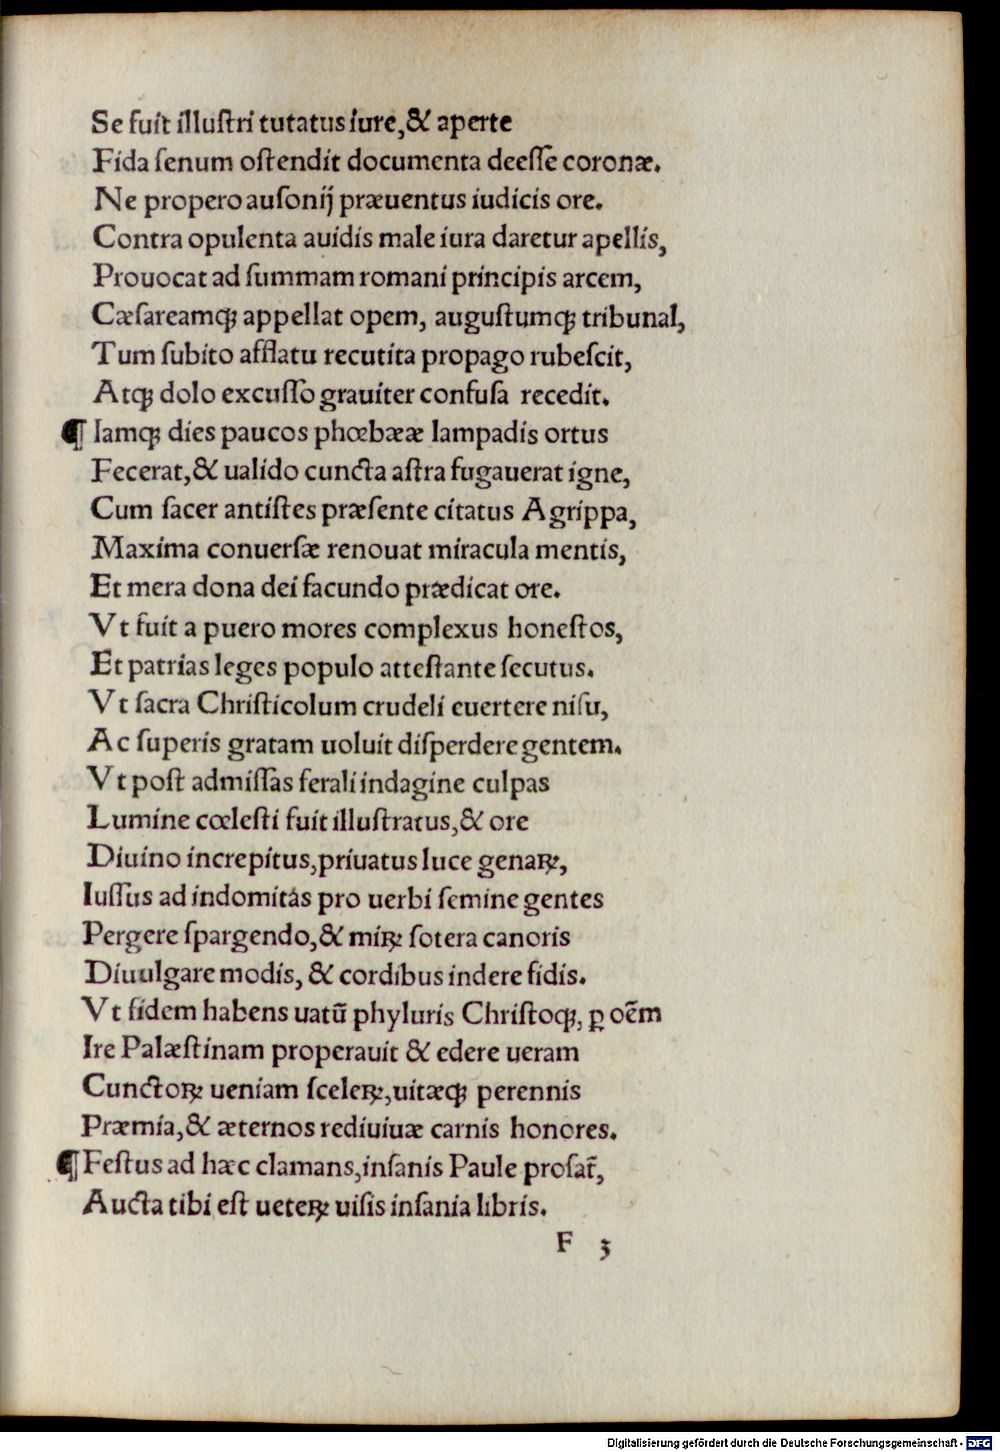 Se fuit illuſtri tutatus iure,& aperte
Fida ſenum oſtendit documenta deeſſe coronæ.
Ne propero auſonij præuentus iudicis ore.
Contra opulenta auidis male iura daretur apellis,
Prouocat ad ſummam romani principis arcem,
Cæſareamqꝫ appellat opem, auguſtumqꝫ tribunal,
Tum ſubito afflatu recutita propago rubeſcit,
Atqꝫ dolo excuſſo grauiter confuſa recedit.
¶ Iamqꝫ dies paucos phœbææ lampadis ortus
Fecerat,& ualido cuncta aſtra fugauerat igne,
Cum ſacer antiſtes præſente citatus Agrippa,
Maxima conuerſæ renouat miracula mentis,
Et mera dona dei facundo prædicat ore.
Vt fuit a puero mores complexus honeſtos,
Et patrias leges populo atteſtante ſecutus.
Vt ſacra Chriſticolum crudeli euertere niſu,
Ac ſuperis gratam uoluit diſperdere gentem.
Vt poſt admiſſas ferali indagine culpas
Lumine cœleſti fuit illuſtratus,& ore
Diuino increpitus,priuatus luce genaꝝ,
Iuſſus ad indomitás pro uerbi ſemine gentes
Pergere ſpargendo,& miꝝ ſotera canoris
Diuulgare modis, & cordibus indere fidis.
Vt fidem habens uatū phyluris Chriſtoqꝫ, ꝑ oēm
Ire Palæſtinam properauit & edere ueram
Cunctoꝝ ueniam ſceleꝝ,uitæqꝫ perennis
Præmia,& æternos rediuiuæ carnis honores.
¶ Feſtus ad hæc clamans,inſanis Paule profat᷑,
Aucta tibi eſt ueteꝝ uiſis inſania libris.
F 3
Digitalisierung gefördert durch die Deutsche Forschungsgemeinschaft - DFG